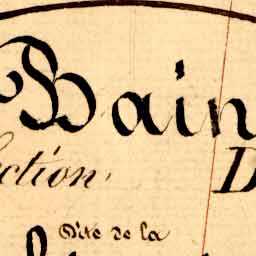 Bain
ction D
Dite de la